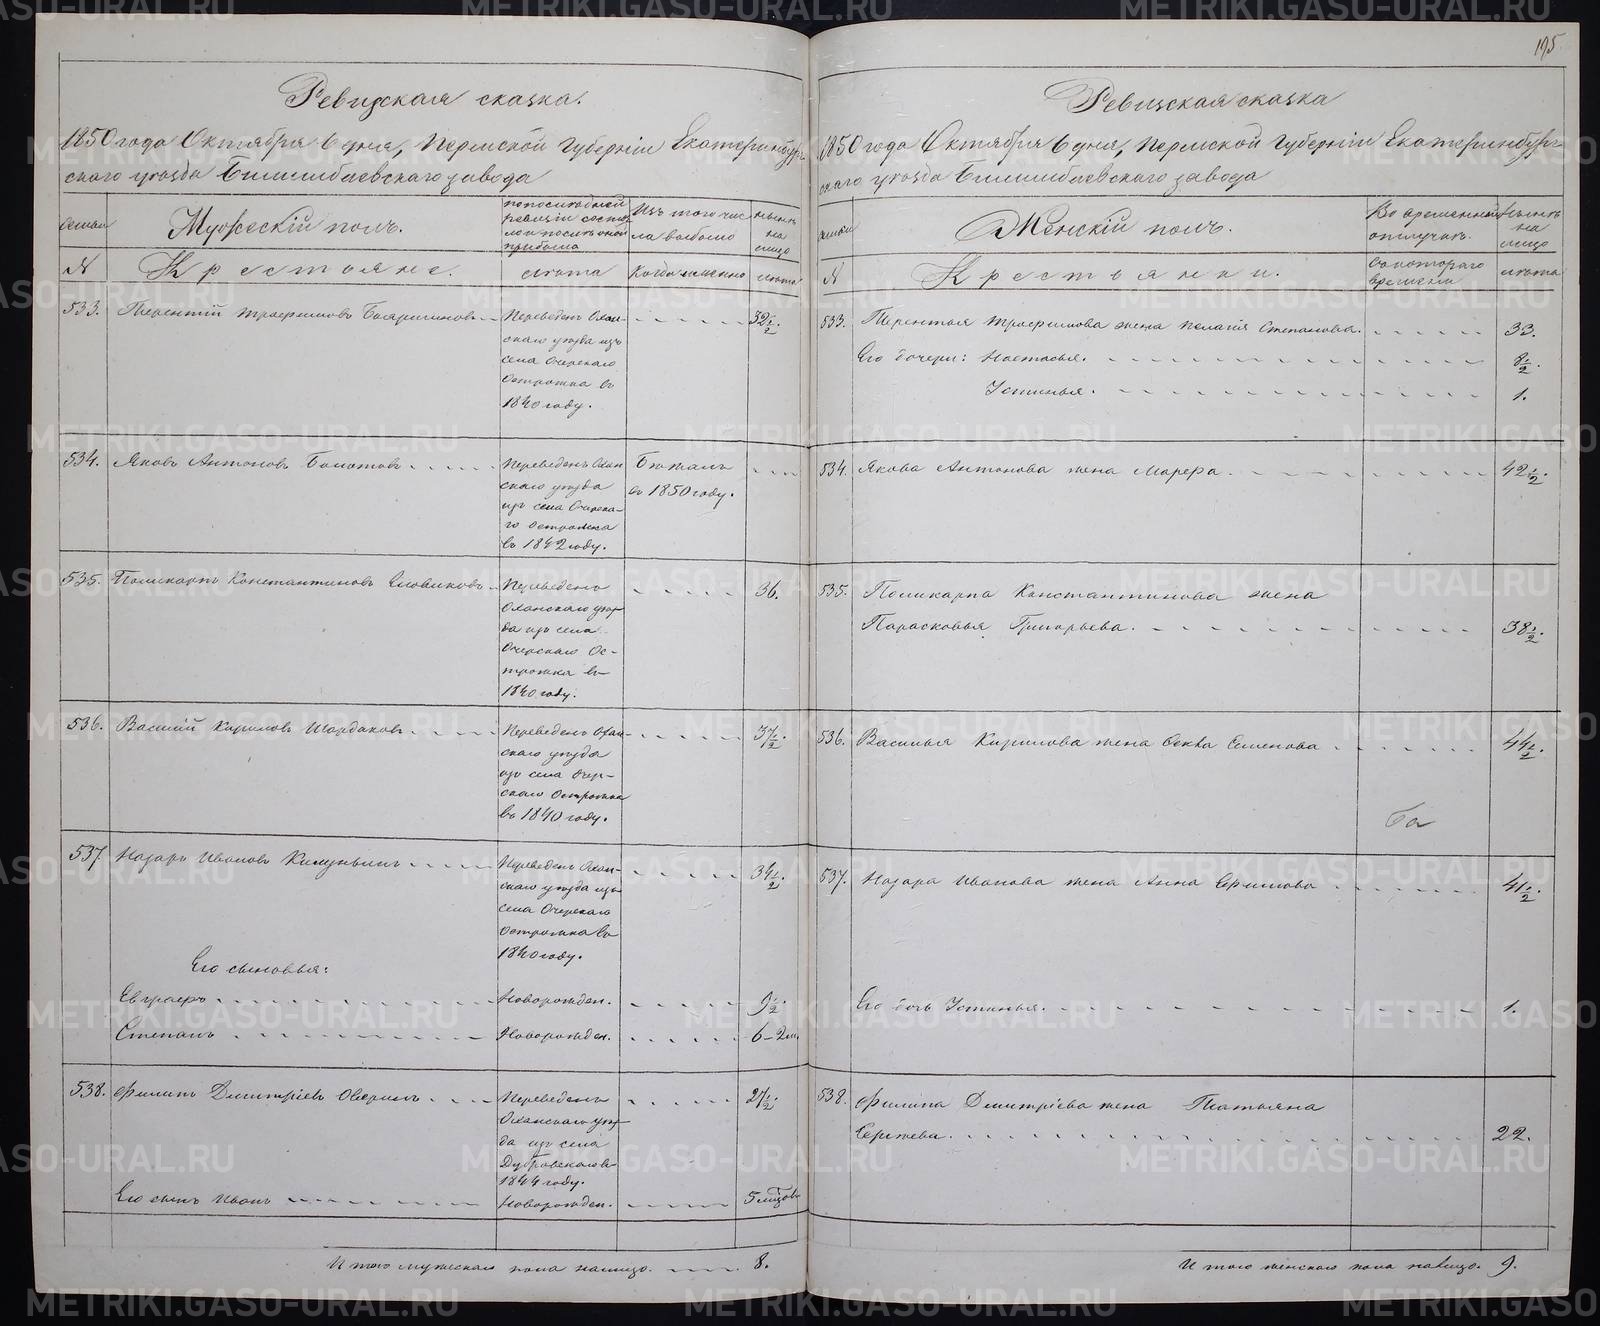 195
Ревизская сказка.
1850 года Октября 6 дня, Пермской Губерніи Екатеринбург-
скаго уѣзда Билимбаевскаго завода
семьи
Мужескій полъ.
по послѣдней
ревизіи состоя
ло и послѣ оной
прибыло
Изъ того чис
ла выбыло
нынѣ
на
лицо
№
Крестьяне.
лѣта
Когда именно
лѣта
533. Терентій Трофимовъ
Переведенъ Охан-
скаго уѣзда изъ
села Очерскаго
Острожка въ
1840 году.
32 1/2.
534. Яковъ Антоновъ Болотовъ
Переведенъ Охан
скаго уѣзда
изъ села Очерска-
го острожка
въ 1842 году.
Бѣжалъ
въ 1850 году.
535. Поликарпъ Константиновъ
Переведенъ
Оханскаго уѣз-
да изъ села
Очерскаго Ос-
трожка въ
1840 году.
36.
536. Василій Кириловъ Шардаковъ
Переведенъ Охан-
скаго уѣзда
изъ села Очер-
скаго Острожка
въ 1840 году.
37 1/2.
537. Назаръ Ивановъ
Переведенъ Охан-
скаго уѣзда изъ
села Очерскаго
Острожка въ
1840 году.
34 1/2.
Его сыновья:
Евграфъ
Новорожден.
9 1/2.
Степанъ
Новорожден.
6-2 м.
538. Филипъ Дмитріевъ
Переведенъ
Оханскаго уѣз-
да изъ села
Дубровскаго въ
1844 году.
21 1/2.
Его сынъ Иванъ
Новорожден.
Итого мужескаго пола налицо. 8.
Ревизская сказка
1850 года Октября 6 дня, Пермской Губерніи Екатеринбург-
скаго уѣзда Билимбаевскаго завода
семьи
Женскій полъ.
Во временной
отлучкѣ.
нынѣ
на
лицо
№
Крестьянки.
съ котораго
времени
лѣта
533. Терентья Трофимова жена Пелагія Степанова. 33.
Его дочери: Настасья. 8 1/2.
Устинья. 1.
534. Якова Антонова жена Марфа. 42 1/2.
535. Поликарпа Константинова жена
Парасковья Григорьева. 38 1/2.
536. Василья Кирилова жена Ѳекла Семенова 44 1/2.
537. Назара Иванова жена Анна Ефимова 41 1/2.
Его дочь Устинья. 1.
538. Филипа Дмитріева жена Татьяна
Сергѣева. 22.
Ба
Итого женскаго пола налицо. 9.
METRIKI.GASO-URAL.RU